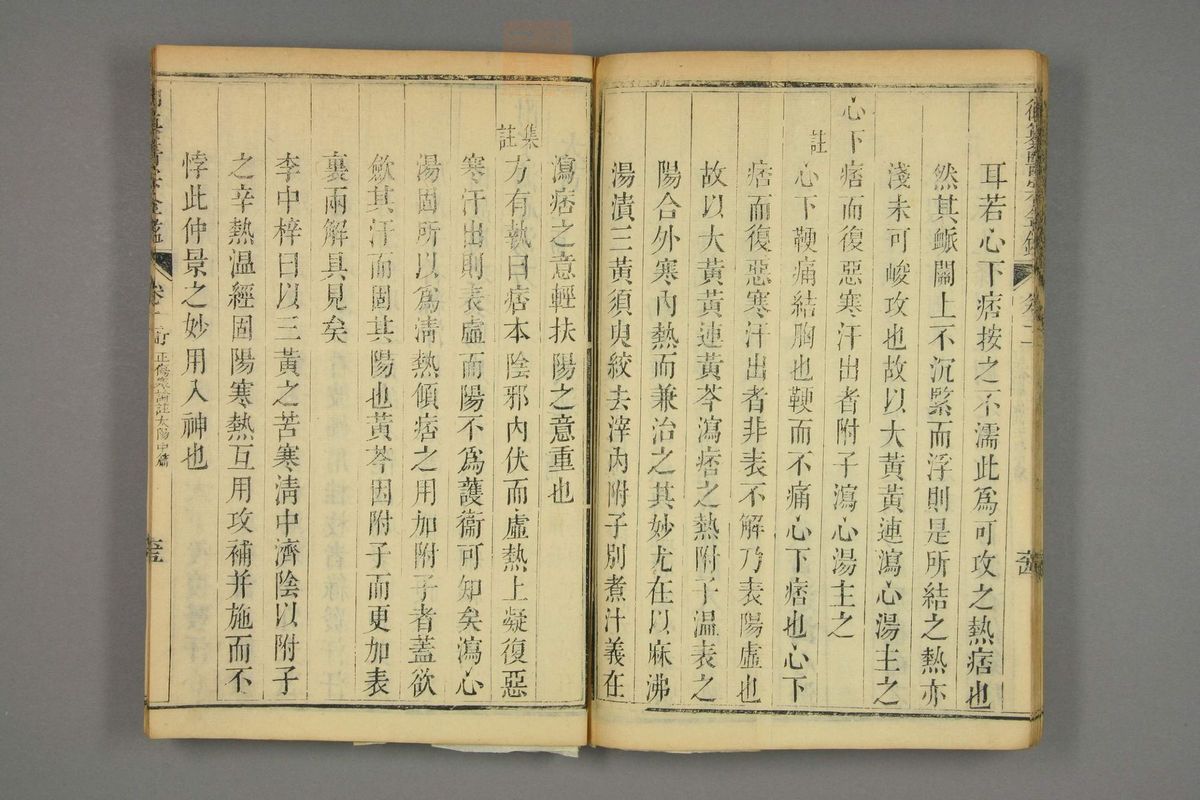 耳若心下痞按之不濡此為可攻之熱痞也
然其脈關上不沉緊而浮則是所結之熱亦
淺未可峻攻也故以大黃黃連瀉心湯主之
心下痞而復惡寒汗出者附子瀉心湯主之
註
心下鞕痛結胸也鞕而不痛心下痞也心下
痞而復惡寒汗出者非表不解乃表陽虛也
故以大黃黃連黃芩瀉痞之熱附子溫表之
陽合外寒內熱而兼治之其妙尤在以麻沸
湯漬三黃須臾絞去滓內附子別煮汁義在
瀉痞之意輕扶陽之意重也
集註
方有執曰痞本陰邪內伏而虛熱上凝復惡
寒汗出則表虛而陽不為護衞可知矣瀉心
湯固所以為清熱傾痞之用加附子者蓋欲
歛其汗而固其陽也黃芩因附子而更加表
裏兩解具見矣
李中梓曰以三黃之苦寒清中濟陰以附子
之辛熱溫經固陽寒熱互用攻補并施而不
悖此仲景之妙用入神也
金鑑
正傷寒論註太陽中篇